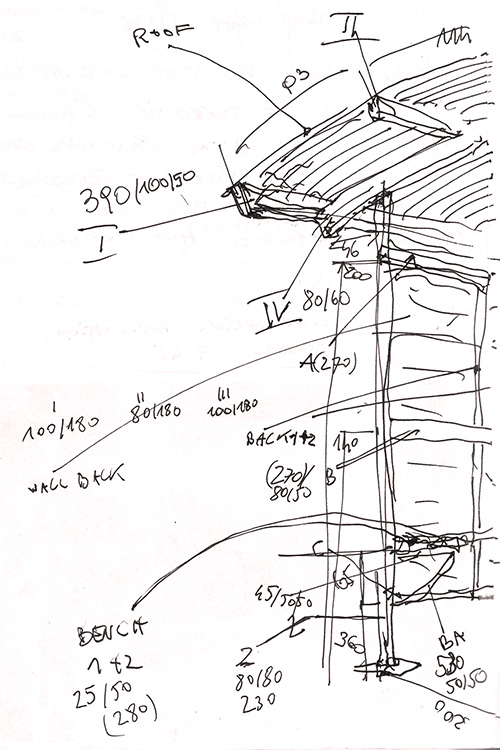 II
ROOF
P3
390/100/50
I
46
200
IV 80/60
A(270)
I II III
100/180 80/180 100/180
BACK 1+2
140
(270)/ B
80/50
WALL BACK
C
45/5050
BENCH
1+2
25/50
(280)
Z
80/80
230
360
50/50
200